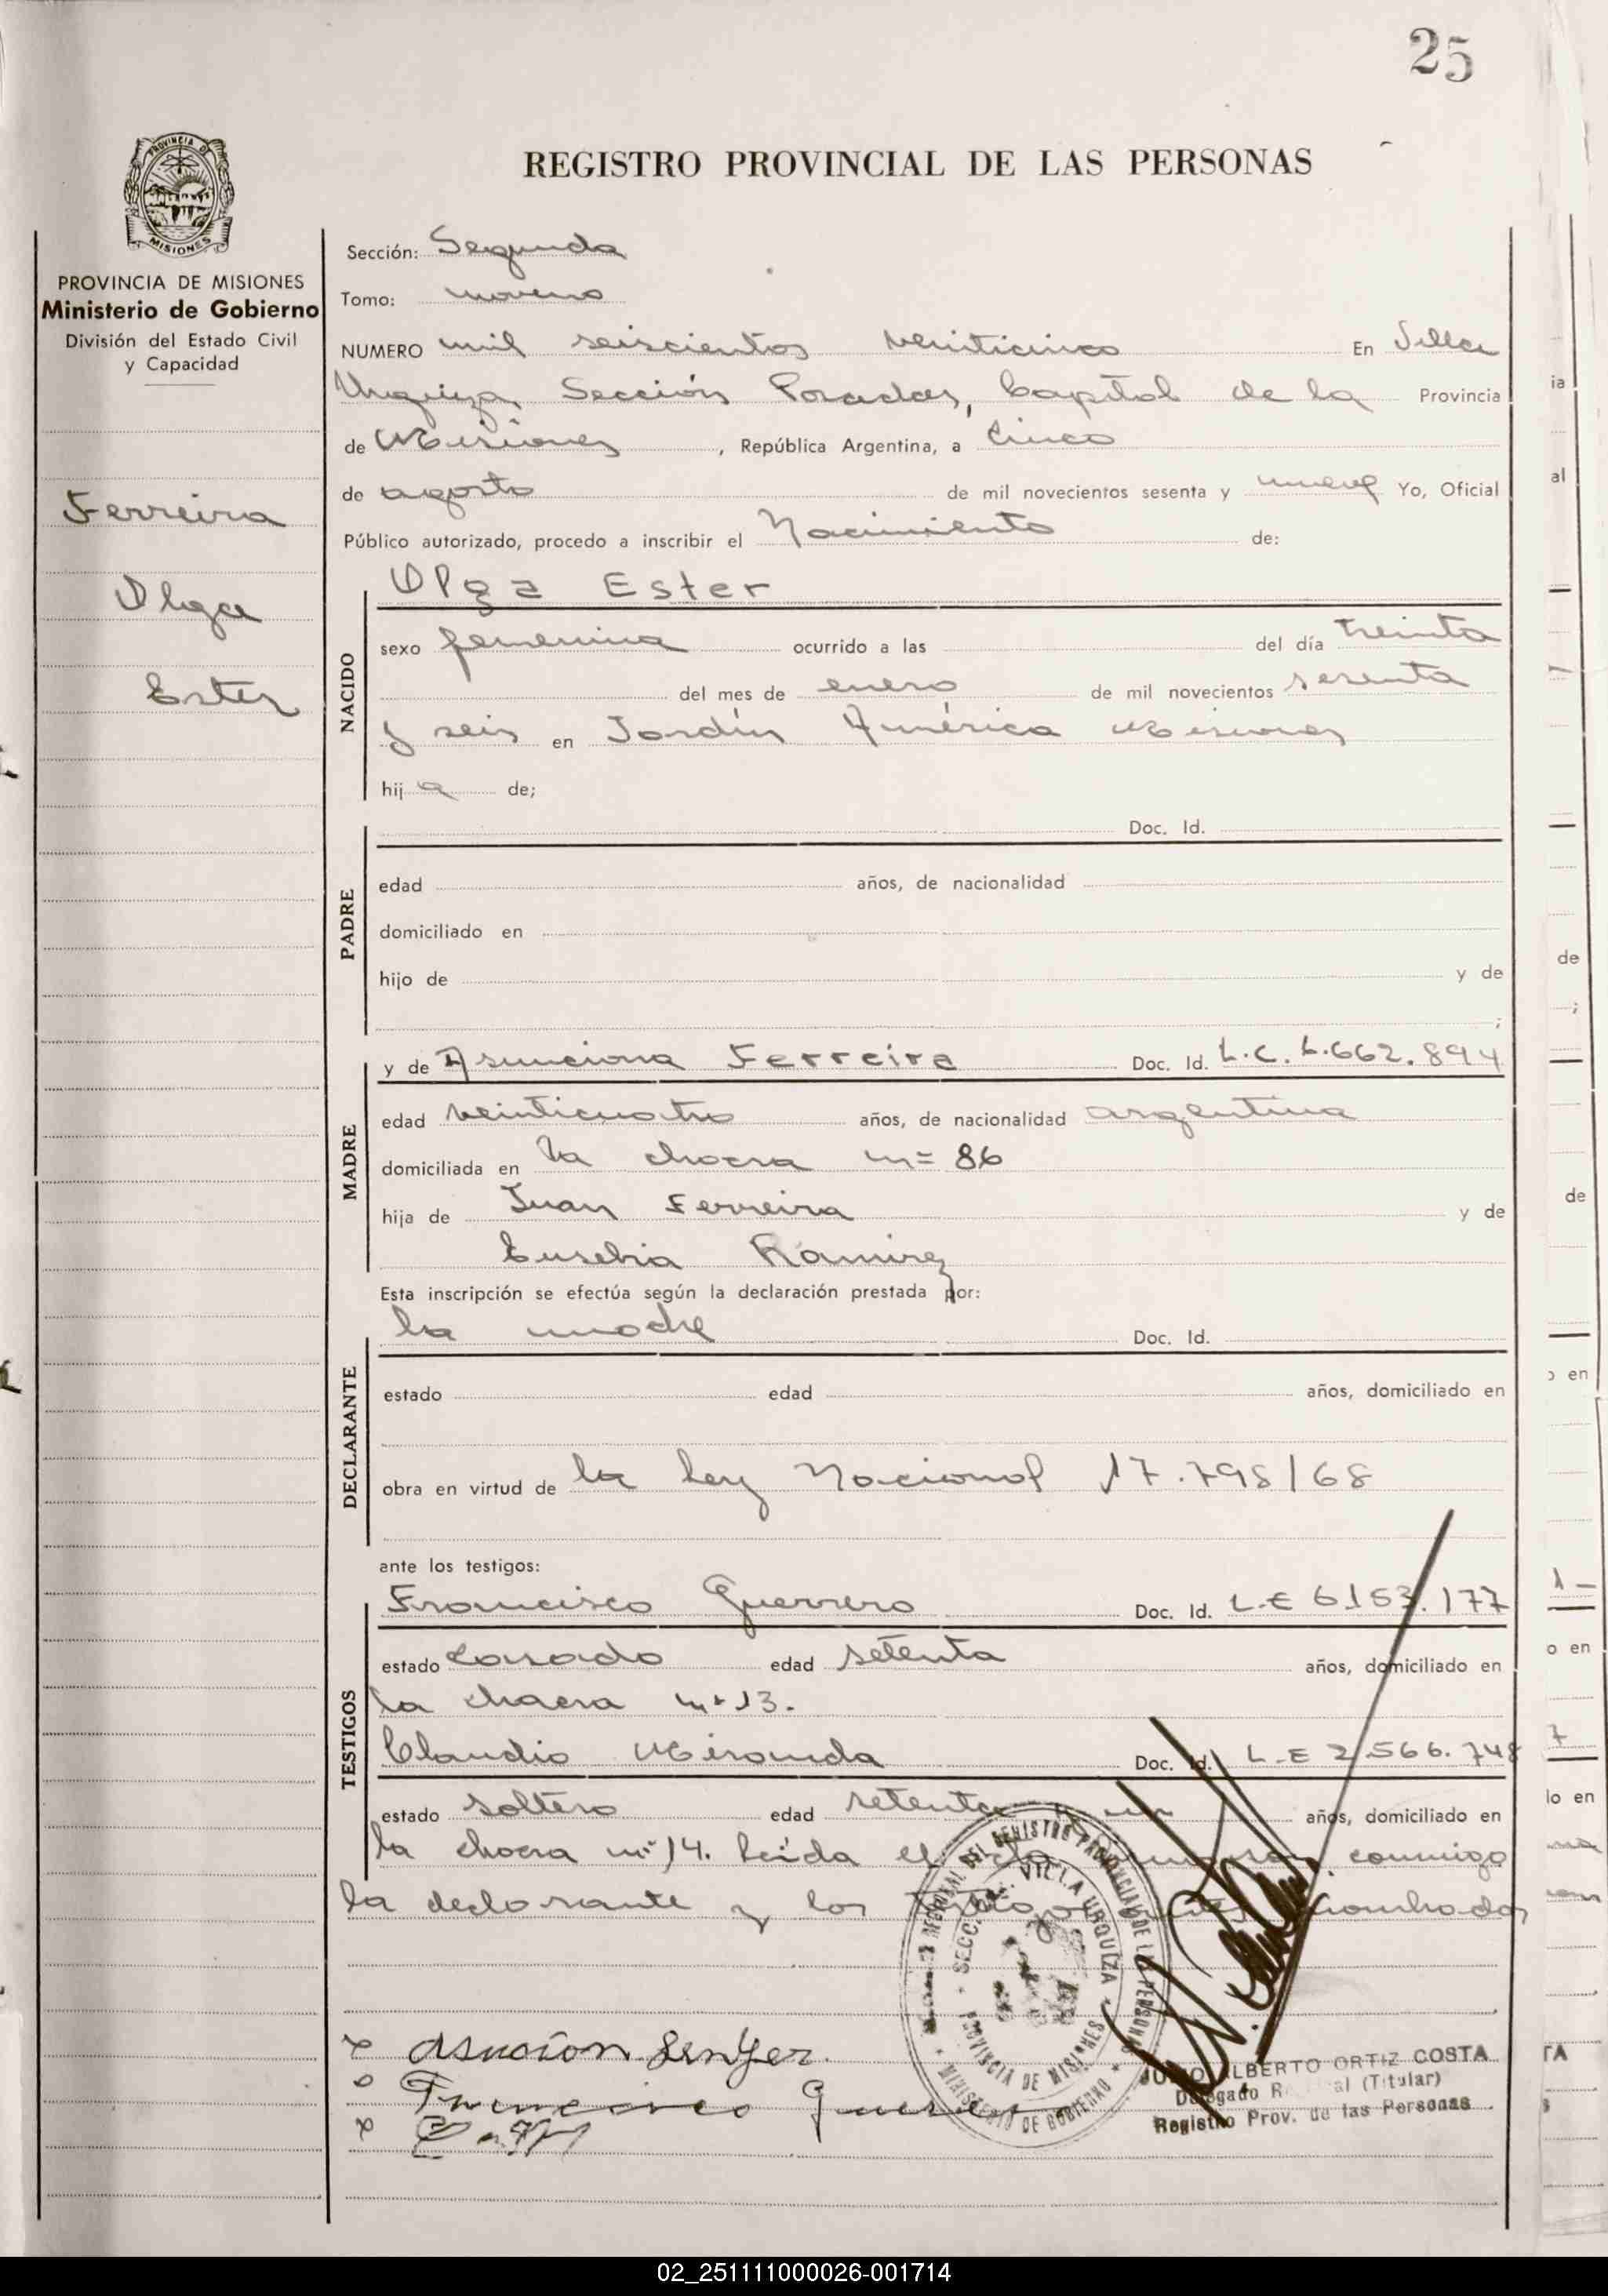 25
PROVINCIA DE
MISIONES
REGISTRO PROVINCIAL DE LAS PERSONAS
PROVINCIA DE MISIONES
Ministerio de Gobierno
División del Estado Civil
y Capacidad
Ferreira
Olga
Ester
Sección: Segunda
Tomo: noveno
NUMERO mil seiscientos veinticinco En Villa
Urquiza, Sección Posadas, Capital de la Provincia
de Misiones, República Argentina, a cinco
de agosto de mil novecientos sesenta y nueve Yo, Oficial
Público autorizado, procedo a inscribir el Nacimiento de:
Olga Ester
NACIDO
sexo femenina ocurrido a las del día treinta
del mes de enero de mil novecientos sesenta
y seis en Jardín América Misiones
hija de;
PADRE
Doc. Id.
edad años, de nacionalidad
domiciliado en
hijo de y de
;
MADRE
y de Asunciona Ferreira Doc. Id. L.C. 6.662.894
edad veinticuatro años, de nacionalidad argentina
domiciliada en la chacra nº 86
hija de Juan Ferreira y de
Eusebia Ramirez
Esta inscripción se efectúa según la declaración prestada por:
DECLARANTE
la madre Doc. Id.
estado edad años, domiciliado en
obra en virtud de la Ley Nacional 17.798/68
ante los testigos:
TESTIGOS
Francisco Guerrero Doc. Id. L.E 6.153.177
estado casado edad setenta años, domiciliado en
la chacra nº 13.
Claudio Miranda Doc. Id. L.E 2.566.748
estado soltero edad setenta y un años, domiciliado en
la chacra nº 14. Leída el acta conmigo
la declarante y los testigos
SECC. VILLA URQUIZA
PROVINCIA DE MISIONES
REGIONAL DEL REGISTRO PROVINCIAL DE LAS PERSONAS
MINISTERIO DE GOBIERNO
Francisco Guerrero
ALBERTO ORTIZ COSTA
Delegado (Titular)
Registro Prov. de las Personas
02_251111000026-001714